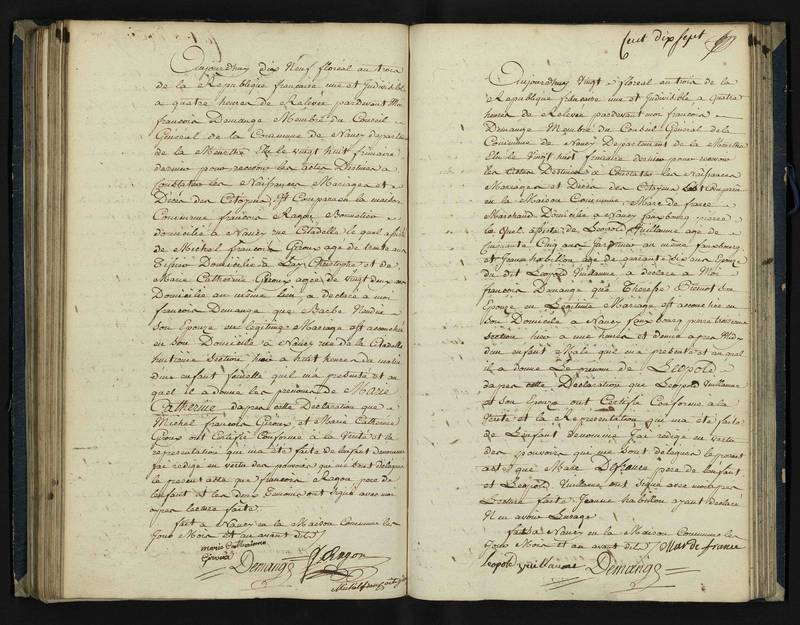 Aujourdhuy dix Neuf floreal an trois
de la Republique francaise une et Indivisible
a quatre heures de Relevee pardevant Moi
francois Demange Membre du Conseil
General de la Commune de Nancy departem
de la Meurthe Elu le vingt huit frimaire
dernier pour recevoir les actes Destines a
Constater les Naissances Mariages et
Deces des Citoyens, Est Comparu en la maison
Commune francois Ragon Bonnetier
domicilié a Nancy rue Citadelle le quel assisté
de Michel francois Giroux age de trente ans
Tissier Domicilié à Lay Christophe et de
Marie Catherine Giroux agée de vingt deux ans
Domicilié au même lieu, a declaré a moi
francois Demange que Barbe
son Epouze en legitime Mariage est accouchée
en son Domicile a Nancy rue de la Citadelle
huitieme Section hier a huit heures du matin
dun enfant femelle quil ma presenté et au
quel il a donné les prenoms de Marie
Catherine dapres cette Declaration que
Michel francois Giroux et Marie Catherine
Giroux ont Certifié Conforme à la Verité et la
representation qui ma été faite de lenfant denommé
jai redigé en vertu des pouvoirs qui me sont delegués
le present acte que francois Ragon pere de
lenfant et les deux Temoins ont signé avec moi
apres lecture faite.
fait a Nancy en la Maison Commune les
jour Mois et an avant dits
marie Catherine
Giroux
Demange Ragon
Cent dix sept
Aujourdhuy vingt floreal an trois de la
Republique francaise une et Indivisible a quatre
heures de Relevee pardevant moi francois
Demange Membre du Conseil General dela
Commune de Nancy Departement de la Meurthe
Elu le Vingt huit frimaire dernier pour recevoir
les actes Destines a Constater les Naissances
Mariages et Deces des Citoyens Est Comparu
en la Maison Commune Marc de france
Marchand Domicilié a Nancy faubourg
le quel assisté de Leopold Vuillaume age de
Cinquante Cinq ans jardinier au même faubourg
et Jeanne habillon age de quarante six ans Epouze
du dit Leopold Vuillaume a declaré a Moi
francois Demange que Therese son
Epouze en Legitime Mariage est accouchée en
son Domicile a Nancy faubourg troisieme
section hier a une heures et demie apres Midi
dun enfant Male quil ma presenté et au quel
il a donné Le prenom de Leopold
dapres cette Declaration que Leopold Vuillaume
et son Epouze ont Certifié Conforme a la
Verité et la Representation qui ma été faite
de Lenfant denommé Jai redigé en vertu
des pouvoirs qui me sont delegues le present
acte que Marc Defrance pere de lenfant
et Leopold Vuillaume ont signé avec moi apres
Lecture faite Jeanne habillon ayant declaré
N'en avoir Lusage
fait a Nancy en la Maison Commune les
jour Mois et an avant dits Marc de france
leopold vuillaume Demange